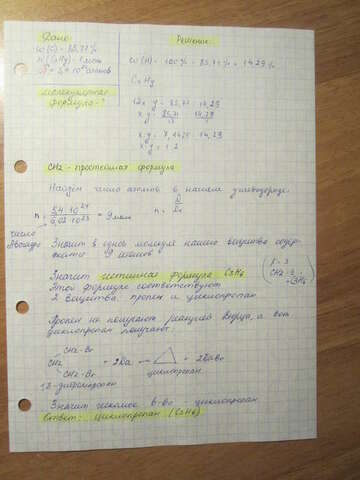 Дано:
Решение:
ω(C) = 85,71%
n(CxHy) = 1 моль
ω(H) = 100% - 85,71% = 14,29%
CxHy
молекулярная
формула - ?
12x : y = 85,71 : 14,29
x : y = 85,71/12 : 14,29/1
x : y = 7,1425 : 14,29
x : y = 1 : 2
CH2 - простейшая формула
Найдём число атомов в нашем углеводороде.
n = 5,4·10²⁴/6,02·10²³ = 9 моль
число
Авогадро
Значит в одной молекуле нашего вещества содер-
жится 9 атомов
Значит истинная формула C3H6
Этой формуле соответствуют
2 вещества: пропен и циклопропан.
Пропен не получают реакцией Вюрца, а вот
циклопропан получают:
CH2-Br
CH2 + 2Na → + 2NaBr
CH2-Br
циклопропан
1,3-дибромпропан
Значит искомое в-во - циклопропан
Ответ: циклопропан (C3H6)